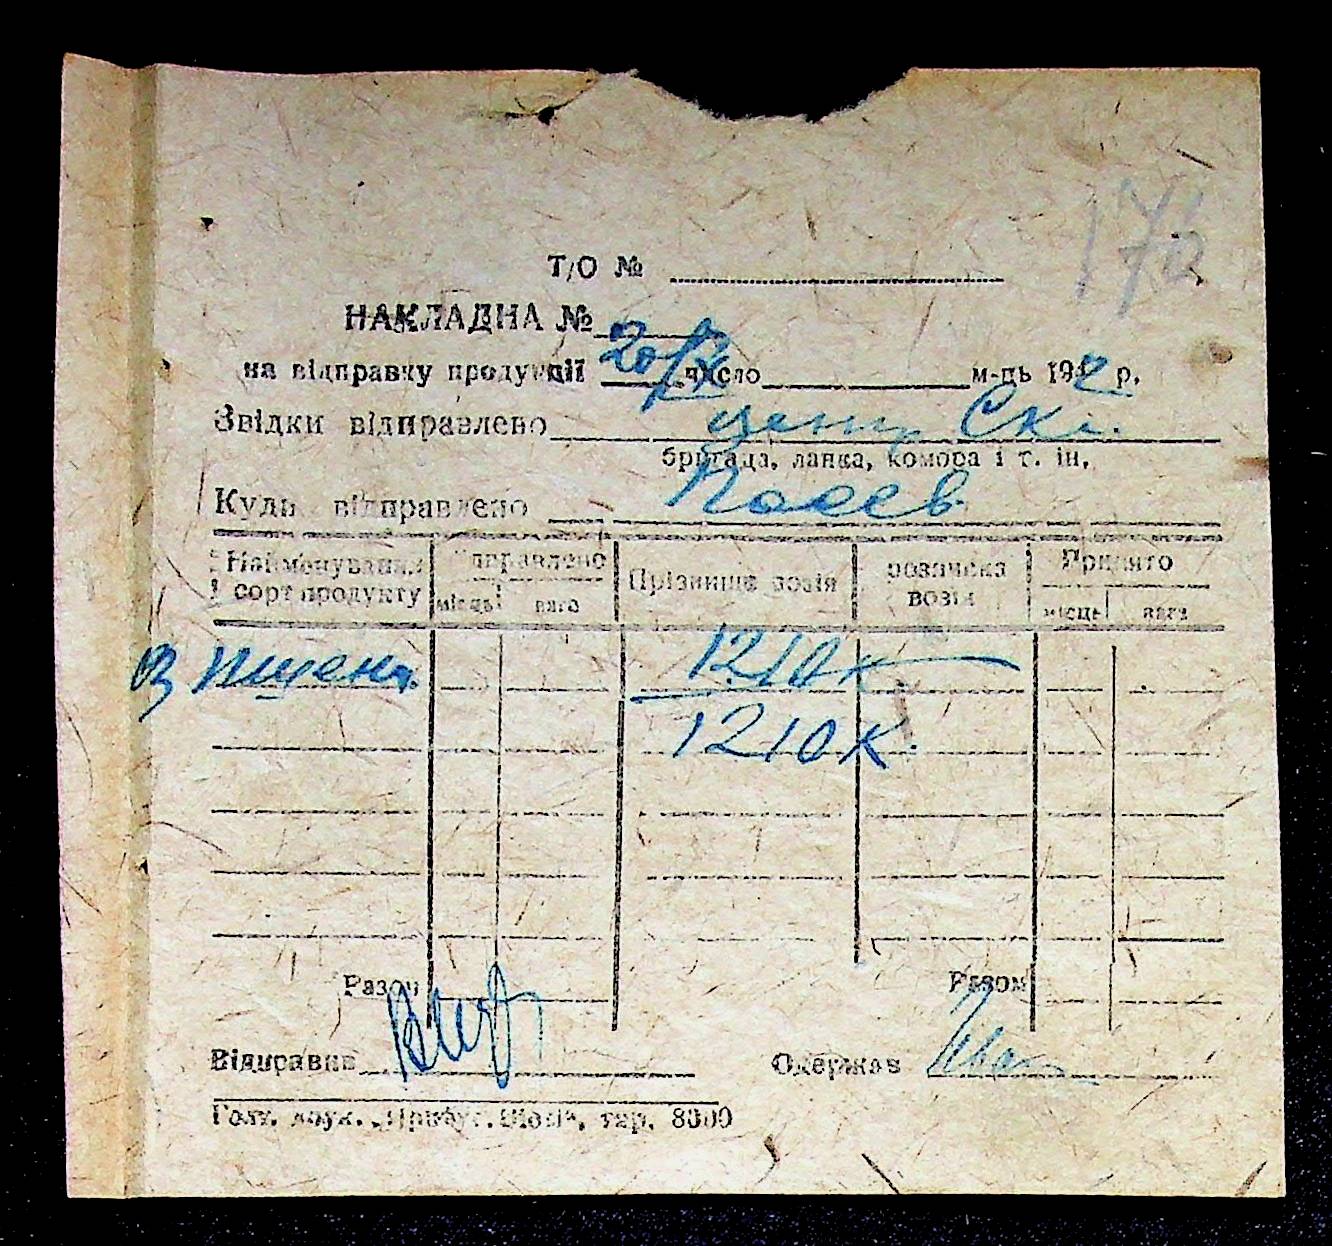 Т/О №
НАКЛАДНА №
на відправку продукції 20/IX число м-ць 1942 р.
Звідки відправлено центр Скл.
бригада, ланка, комора і т. ін.
Куди відправлено Посев
Найменування і сорт продукту
відправлено
місць вага
Прізвище возія
розписка возія
Прийнято
місць вага
Оз Пшениц. 1210 к
1210 к.
Разом Разом
Відправив Одержав
Голт. друк. „Прибуг. Вісті“, тир. 8000